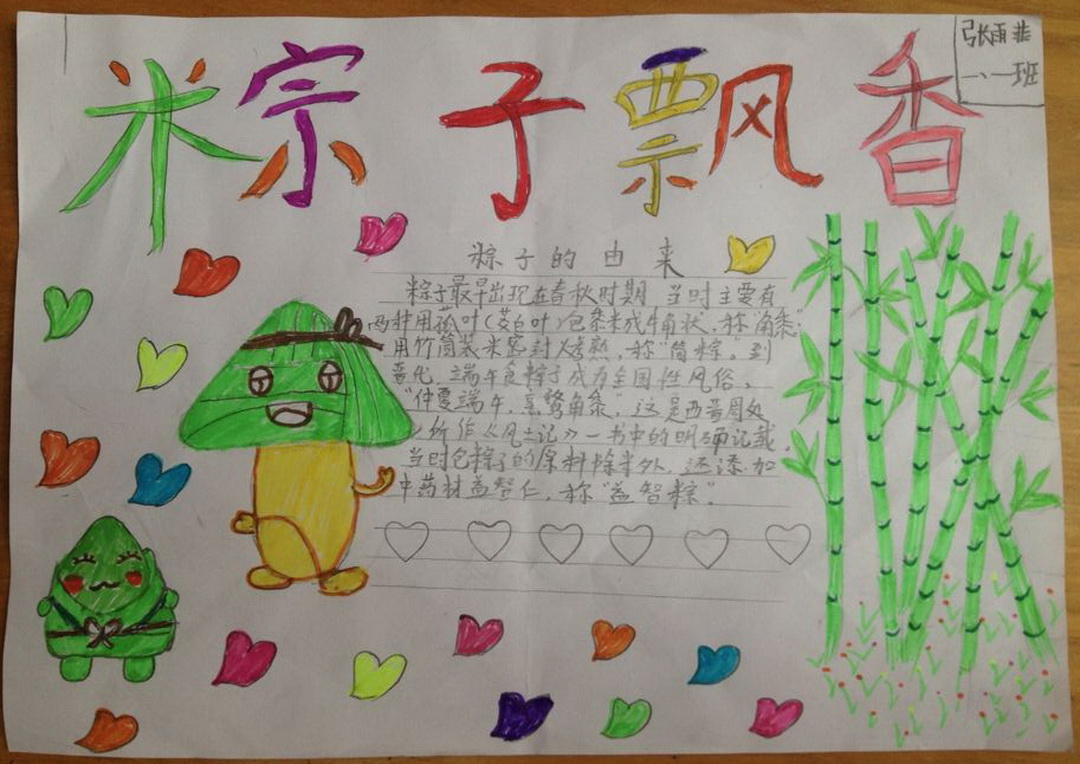 粽子飘香
张雨非
一、一班
粽子的由来
粽子最早出现在春秋时期,当时主要有
两种用菰叶(茭白叶)包黍米成牛角状,称"角黍";
用竹筒装米密封烤熟,称"筒粽"。到
晋代,端午食粽子成为全国性风俗。
"仲夏端午,烹鹜角黍",这是西晋周处
所作《风土记》一书中的明确记载。
当时包粽子的原料除米外,还添加
中药材益智仁,称"益智粽"。